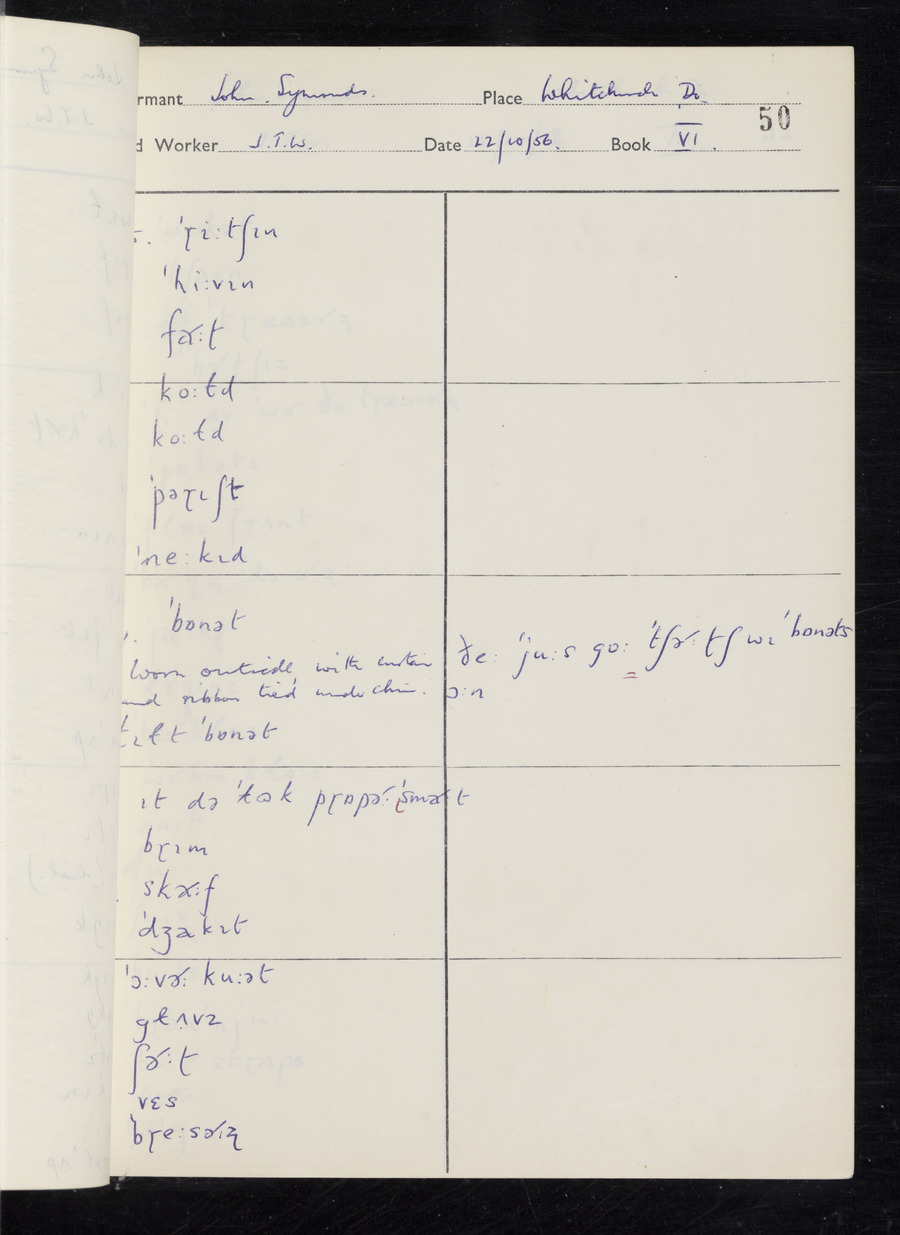 rmant John Symonds. Place Whitchurch Do. 50
d Worker J.T.W. Date 22/10/56. Book VI.
ˈɽiːtʃɪn
ˈhiːvɪn
fɚːt
koːtd
koːtd
ˈpəɽɪʃt
ˈneːkɪd
ˈbɒnət
ðeː ˈjuːs goː ˈtʃɚːtʃ wɪ ˈbɒnəts
ɔːn
Worn outside with curtain
and ribbon tied under chin.
tɪlt ˈbɒnət
ɪt də ˈlɒk pɽɒpɚː ˈsmɚːt
bɽɪm
skɚːf
ˈdʒakɪt
ˈɔːvɚː kuːət
glʌvz
ʃɚːt
vɛs
ˈbɽeːsɚɪz